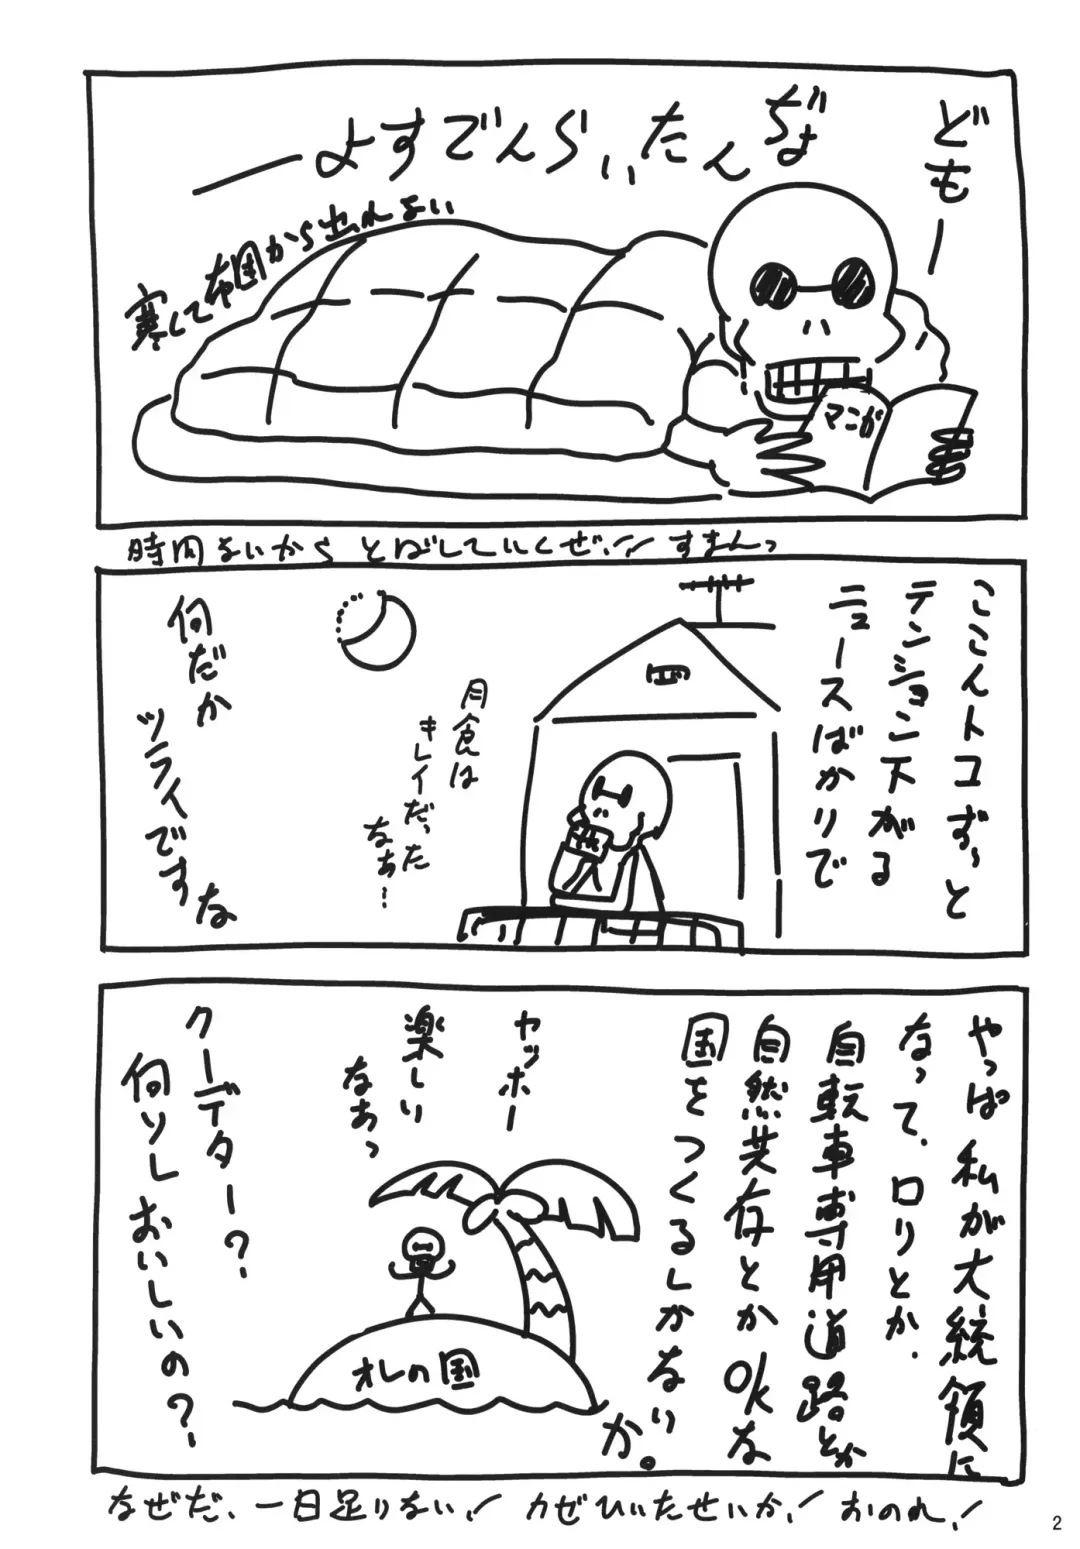 どもー
ぢょ
んたいらんですよー
寒くて布団から出れない
マンガ
時間ないからとばしていくぜ!! すまんっ
ここんトコず〜っと
テンション下がる
ニュースばかりで
月食は
キレイだった
なぁ…
何だか
ツライです
な
やっぱ私が大統領に
なって、ロリとか、
自転車専用道路とか
自然共存とかOkな
国をつくるしかない
か。
ヤッホー
楽しい
なぁっ
オレの国
クーデター?
何ソレおいしいの?
なぜだ、一日足りない! カゼひいたせいか! おのれ!
2